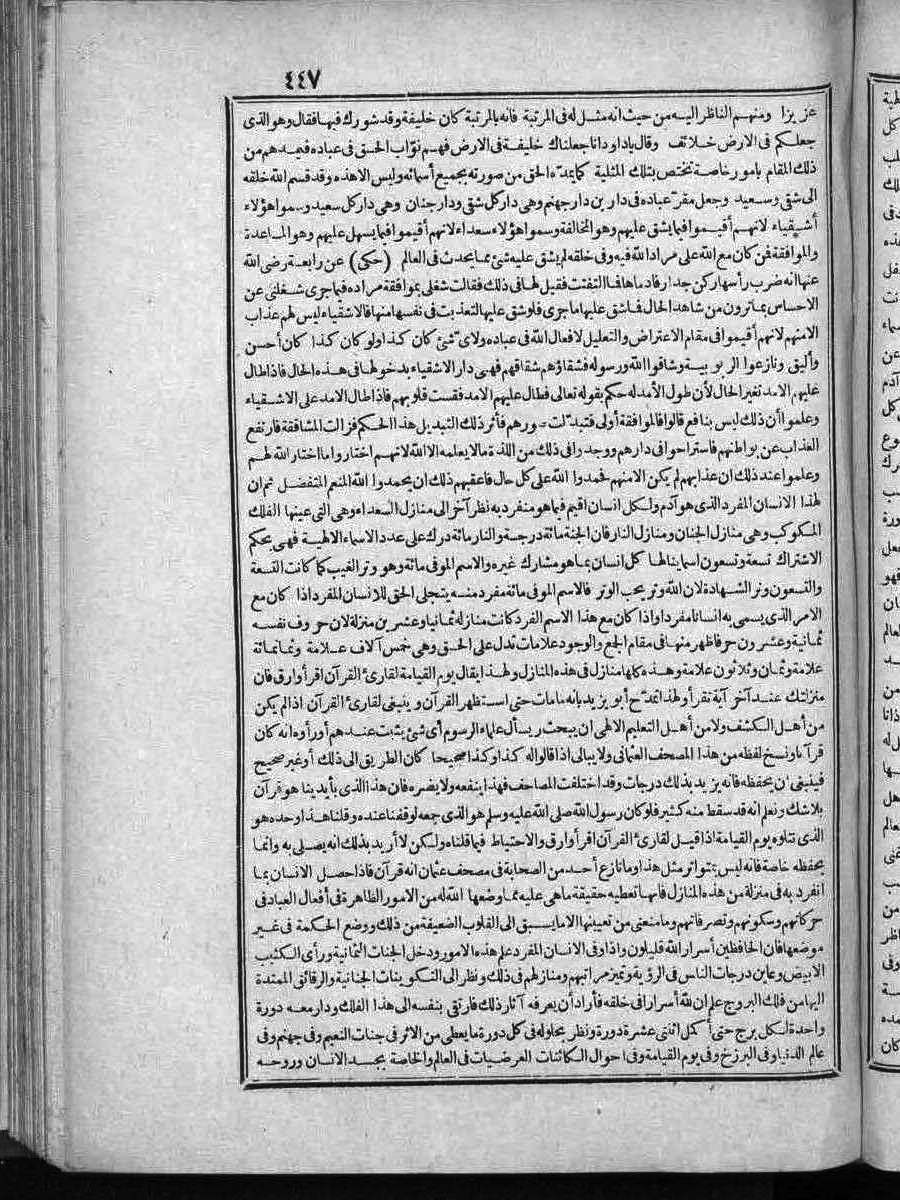 ٤٤٧
عزيزا ومنهم الناظر اليه من حيث انه مثل له فى المرتبة فانه بالمرتبة كان خليفة وقد شورك فيها فقال وهو الذى
جعلكم فى الارض خلائف وقال ياداود انا جعلناك خليفة فى الارض فهم نوّاب الحق فى عباده فيمدهم من
ذلك المقام بامور خاصة تختص بتلك المثلية كما يمدّه الحق من صورته بجميع أسمائه وليس الاهذه وقد قسم الله خلقه
الى شقى وسعيد وجعل مقرّ عباده فى دارين دار جهنم وهى دار كل شقى ودار جنان وهى دار كل سعيد وسموا هؤلاء
أشقياء لانهم أقيموا فيما يشق عليهم وهو المخالفة وسموا هؤلاء سعداء لانهم أقيموا فيما يسهل عليهم وهو المساعدة
والموافقة فن كان مع الله على مراد الله فيه وفى خلقه لم يشق عليه شئ مما يحدث فى العالم (حكى) عن رابعة رضى الله
عنها انه ضرب رأسها ركن جدار فادماها فما التفتت فقيل لها فى ذلك فقالت شغلى بموافقة مراده فيما جرى شغلنى عن
الاحساس بما ترون من شاهد الحال فما شق عليها ما جرى فلو شق عليها لتعذبت فى نفسها منها فالاشقياء ليس لهم عذاب
الا منهم لانهم أقيموا فى مقام الاعتراض والتعليل لافعال الله فى عباده ولاىّ شئ كان كذا ولو كان كذا كان أحسن
وأليق ونازعوا الربوبية وشاقوا الله ورسوله فشقاؤهم شقاقهم فهى دار الاشقياء بدخولها فى هذه الحال فاذا طال
عليهم الامد تغير الحال لأن طول الأمد له حكم بقوله تعالى فطال عليهم الامد فقست قلوبهم فاذا طال الامد على الاشقياء
وعلموا أن ذلك ليس بنافع قالوا فالموافقة أولى فتبدّلت صورهم فأثر ذلك التبديل هذا الحكم فزالت المشاققة فارتفع
العذاب عن بواطنهم فاستراحوا فى دارهم ووجدوا فى ذلك من اللذة ما لا يعلمه الا الله لانهم اختاروا ما اختار الله لهم
وعلموا عند ذلك ان عذابهم لم يكن الا منهم فحمدوا الله على كل حال فاعقبهم ذلك ان يحمدوا الله المنعم المتفضل ثم ان
لهذا الانسان المفرد الذى هو آدم ولكل انسان اقيم فيما هو منفرد به نظر آخر الى منازل السعداء وهى التى عينها الفلك
المكوكب وهى منازل الجنان ومنازل النار فان الجنة مائة درجة والنار مائة درك على عدد الاسماء الالهية فهى بحكم
الاشتراك تسعة وتسعون اسما ينالها كل انسان بما هو مشارك غيره والاسم الموفى مائة وهو وتر الغيب كما كانت التسعة
والتسعون وتر الشهادة لان الله وتر يحب الوتر فالاسم الموفى مائة مفرد منه يتجلى الحق للانسان المفرد اذا كان مع
الامر الذى يسمى به انسانا مفردا واذا كان مع هذا الاسم الفرد كانت منازله ثمانيا وعشرين منزلة لان حروف نفسه
ثمانية وعشرون حرفا ظهر منها فى مقام الجمع والوجود علامات تدل على الحق وهى خمس آلاف علامة وثمانمائة
علامة وثمان وثلاثون علامة وهذه كلها منازل فى هذه المنازل ولهذا يقال يوم القيامة لقارئ القرآن اقرأ وارق فان
منزلتك عند آخر آية تقرأ ولهذا تمدّح أبو يزيد بانه ما مات حتى استظهر القرآن وينبغى لقارئ القرآن اذا لم يكن
من أهل الكشف ولا من أهل التعليم الالهى ان يبحث ويسأل علماء الرسوم أى شئ يثبت عندهم أو رأوه انه كان
قرآنا ونسخ لفظه من هذا المصحف العثمانى ولا يبالى اذا قالوا له كذا وكذا صحيحا كان الطريق الى ذلك أو غير صحيح
فينبغى ان يحفظه فانه يزيد بذلك درجات وقد اختلفت المصاحف فهذا ينفعه ولا يضره فان هذا الذى بأيدينا هو قرآن
بلا شك ونعلم انه قد سقط منه كثير فلو كان رسول الله صلى الله عليه وسلم هو الذى جمعه لوقفنا عنده وقلنا هذا وحده هو
الذى نتلوه يوم القيامة اذا قيل لقارئ القرآن اقرأ وارق والاحتياط فيما قلناه ولكن لا أريد بذلك انه يصلى به وانما
يحفظه خاصة فانه ليس بتواتر مثل هذا وما نازع أحد من الصحابة فى مصحف عثمان انه قرآن فاذا حصل الانسان بما
انفرد به فى منزلة من هذه المنازل فانها تعطيه حقيقة ما هى عليه مما وضعها الله له من الامور الظاهرة فى أفعال العباد فى
حركاتهم وسكونهم وتصرفاتهم وما منعنى من تعيينها الا ما يسبق الى القلوب الضعيفة من ذلك ووضع الحكمة فى غير
موضعها فان الحافظين أسرار الله قليلون واذا وفى الانسان المفرد علم هذه الامور ودخل الجنات الثمانية ورأى الكثيب
الابيض وعاين درجات الناس فى الرؤية وتميز مراتبهم ومنازلهم فى ذلك ونظر الى التكوينات الجنانية والرقائق الممتدة
اليها من فلك البروج علم ان لله أسرارا فى خلقه فأراد أن يعرف آثار ذلك فارتقى بنفسه الى هذا الفلك ودار معه دورة
واحدة لكل برج حتى أكمل اثنتى عشرة دورة ونظر بحلوله فى كل دورة ما يعطى من الاثر فى جنات النعيم وفى جهنم وفى
عالم الدنيا وفى البرزخ وفى يوم القيامة وفى احوال الكائنات العرضيات فى العالم والخاصة بجسد الانسان وروحه